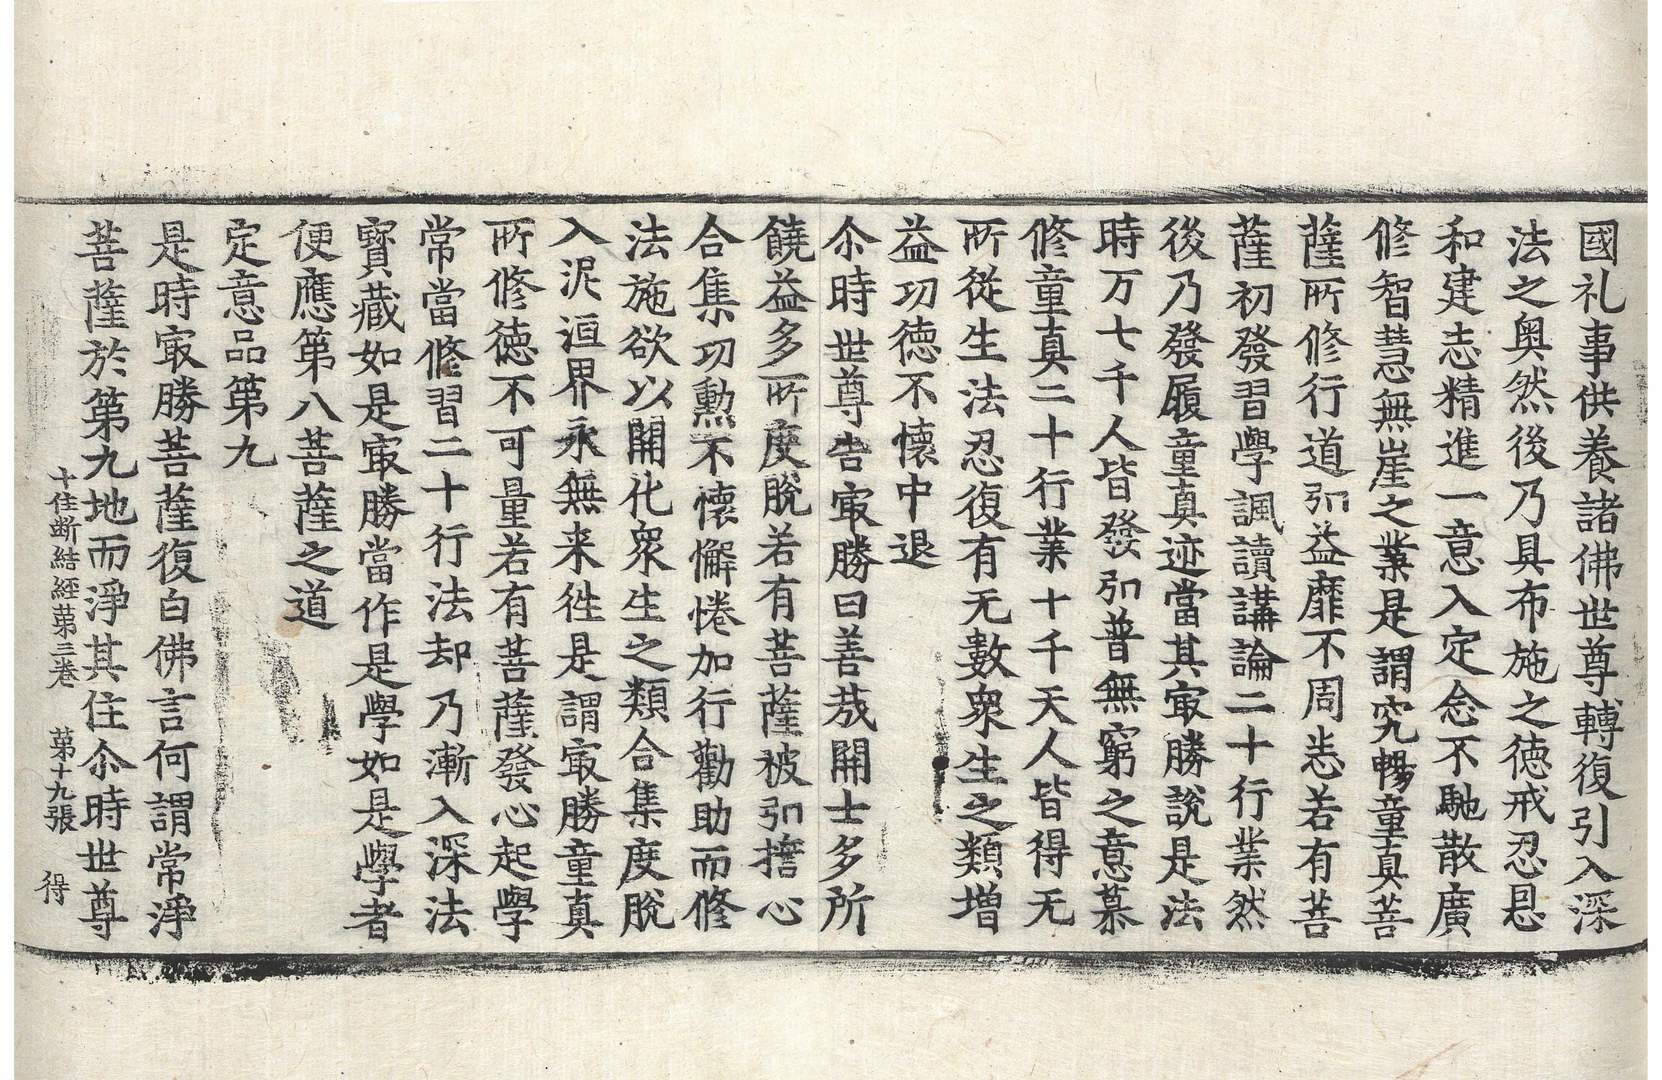 國礼事供養諸佛世尊轉復引入深
法之奥然後乃具布施之德戒忍息
和建志精進一意入定念不馳散廣
修智慧無崖之業是謂究暢童真菩
薩所修行道引益靡不周恙若有菩
薩初發習學諷讀講論二十行業然
後乃發履童真迹當其冣勝說是法
時万七千人皆發引普無窮之意慕
修童真二十行業十千天人皆得无
所從生法忍復有无數衆生之類增
益功德不懷中退
尒時世尊告冣勝曰善哉開士多所
饒益多所度脫若有菩薩被弘誓心
合集功勲不懷懈惓加行勸助而修
法施欲以開化衆生之類合集度脫
入泥洹界永無来徃是謂冣勝童真
所修德不可量若有菩薩發心起學
常當修習二十行法却乃漸入深法
寶藏如是冣勝當作是學如是學者
便應第八菩薩之道
定意品第九
是時冣勝菩薩復白佛言何謂常淨
菩薩於第九地而淨其住尒時世尊
十住断結經苐三卷 苐十九張 得